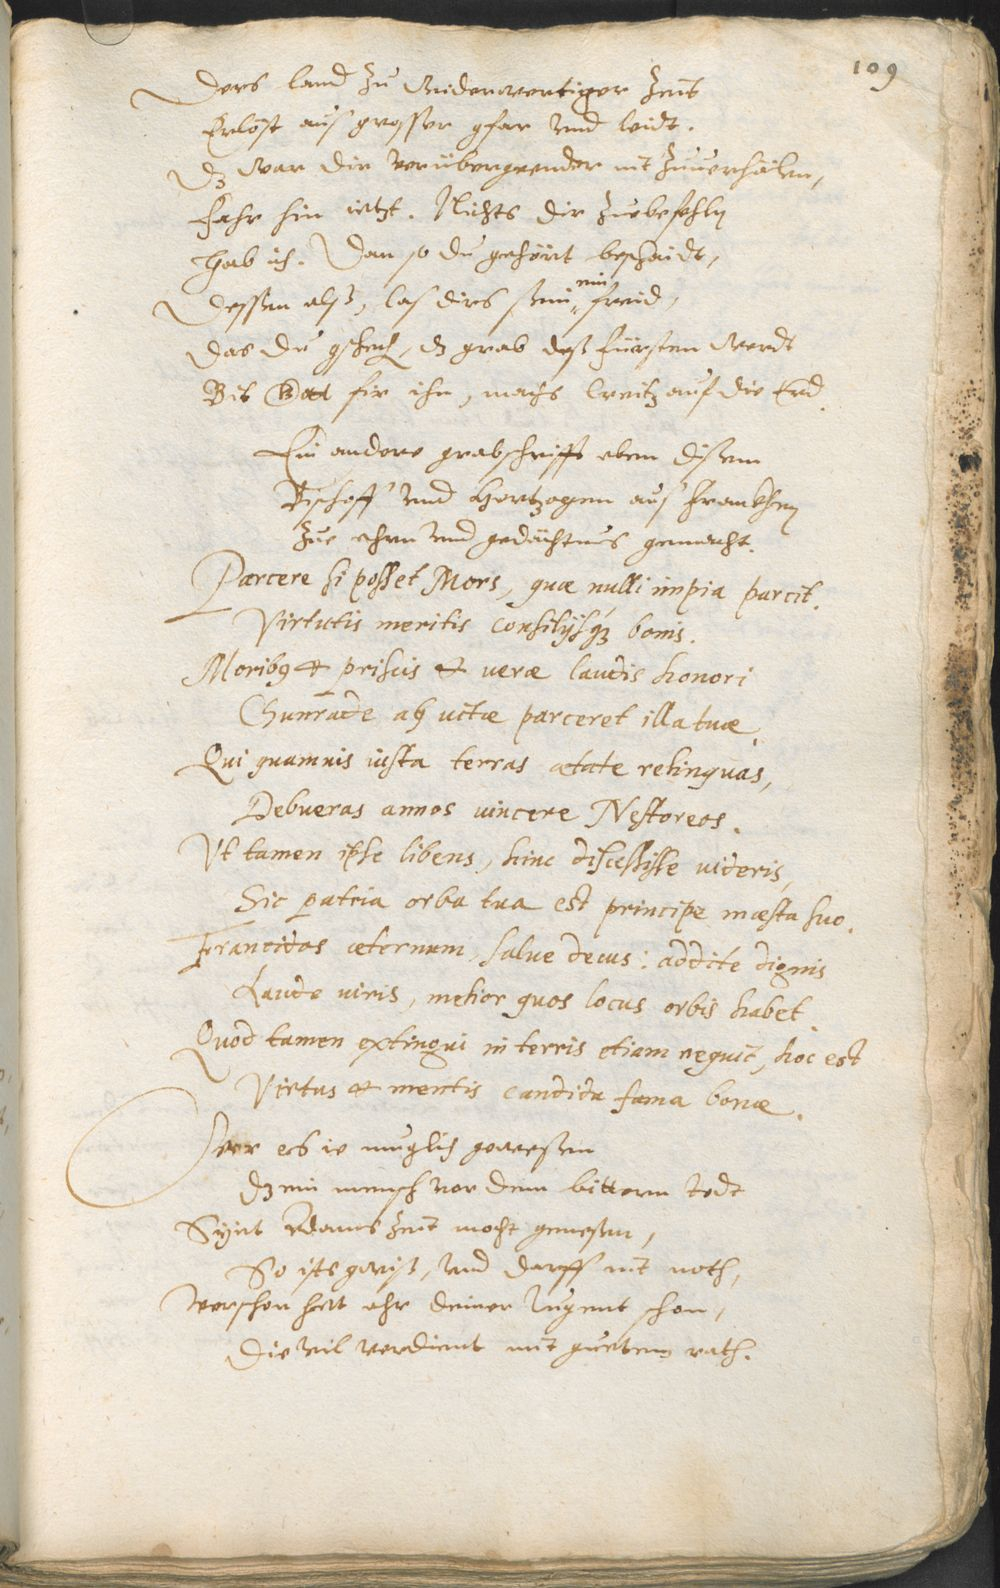 109
Ders land zu widerwertiger Zeit
Erlöst aus grosser gfar vnd leidt.
Dz war dir verübergeender nit zuuerhälen,
Fahr hin ietzt. Nichts dir zuebefehln
Hab ich. Dan so du gehört beschaidt,
Dessen alß, las dirs sein ein freid,
Das du gsehen, dz grab deß fürsten werdt
Bit Gott fir ihn, machs Creitz auf die Erd.
Ein andere grabschrifft eben disem
Bischoff vnd Hertzogen aus Franckhen
zue ehrn vnd gedächtnus gemacht.
Parcere si posset Mors, quæ nulli impia parcit.
Virtutis meritis consilijsq3 bonis.
Morib9 & priscis & veræ laudis honori
Chunrade ah vitæ parceret illa tuæ.
Qui quamuis iusta terras ætate relinquas,
Debueras annos uincere Nestoreos.
Vt tamen ipse libens, hinc discessisse uideris,
Sic patria orba tua est principe mæsta suo.
Francidos æternum salue decus: addite dignis
Laude uiris, melior quos locus orbis habet.
Quod tamen extingui in terris etiam nequit, hoc est
Virtus & mentis candida fama bonæ.
Wer es ie muglich gewessen
Dz ein mensch vor dem bittern todt
Syjnt Adams Zeit mocht genessen,
So ists gwiß, vnd darff nit noth,
Verschon hett ehr deiner Tugent schon,
Die vil verdient mit guetem rath.